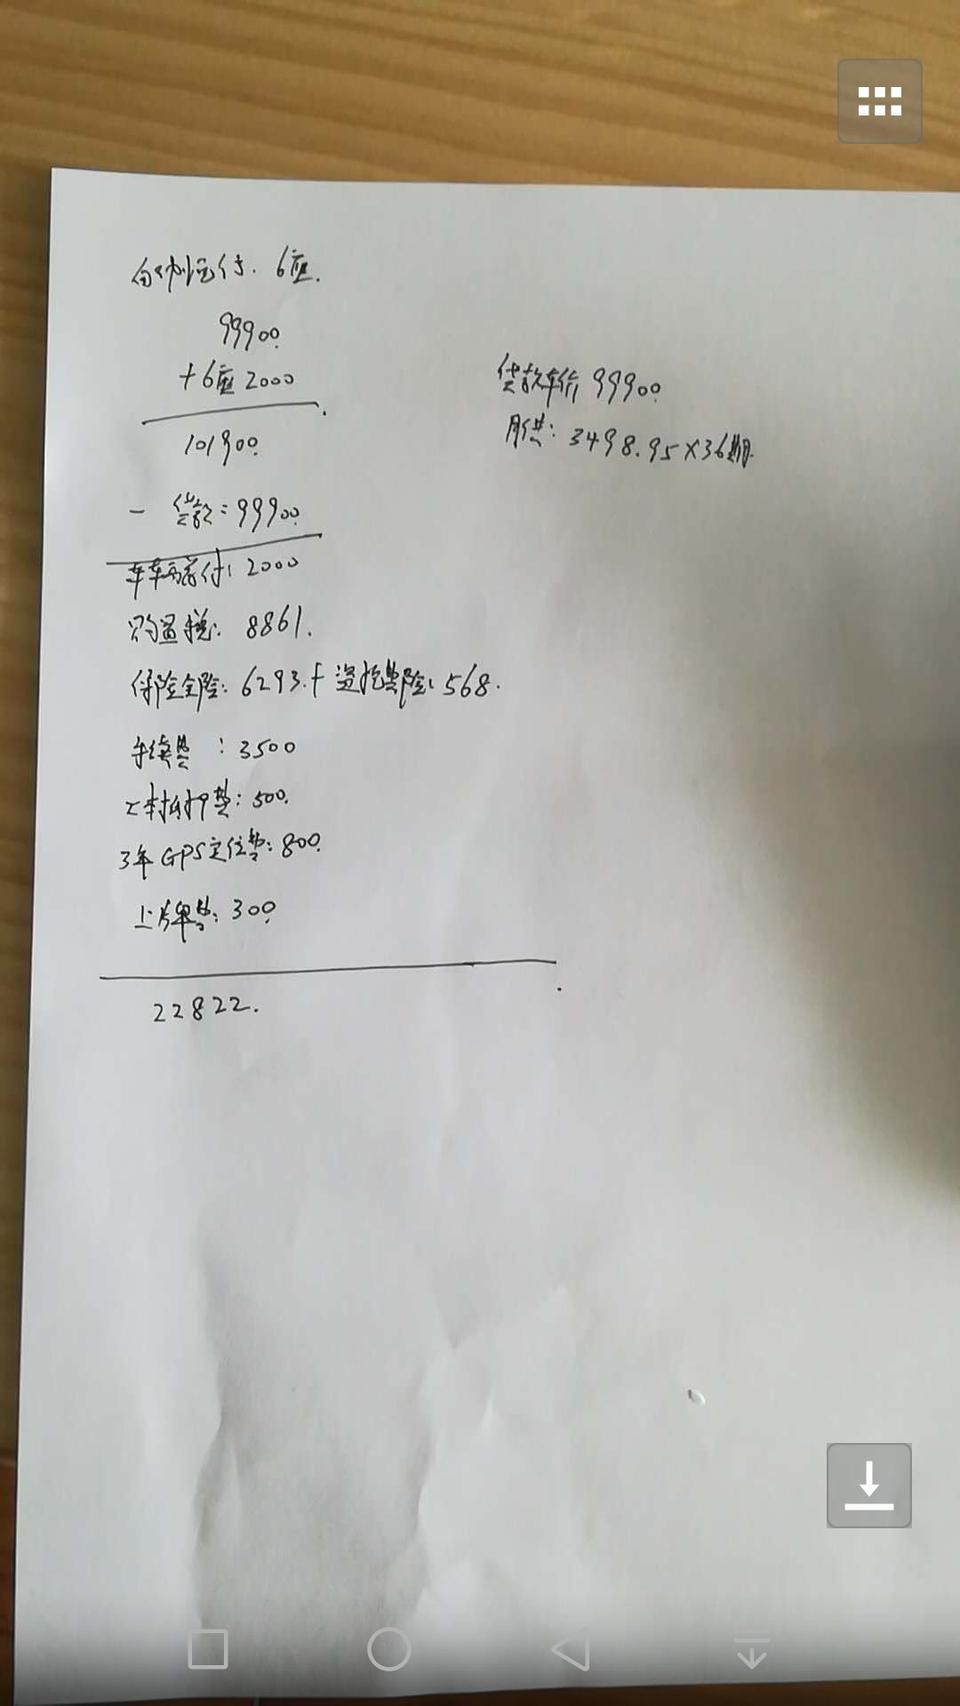 6座.
99900
+6座 2000
101900
- 贷款: 99900
付: 2000
购置税: 8861.
保险全险: 6293. + 盗抢险: 568.
手续费: 3500
费: 500.
3年GPS定位费: 800.
上牌费: 300.
22822.
贷款车价 99900
月供: 3498.95×36期.